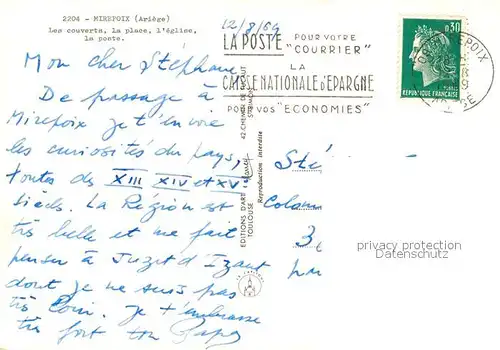 2204 - MIREPOIX (Ariège)
Les couverts, la place, l'église,
la poste.
12/8/69
Mon cher Stéphane
De passage à
Mirepoix je t'envoie
les curiosités du pays,
toutes des XIII XIV et XV
siècles. La Région est
très belle et me fait
penser à Juzet d'Izaut
dont je ne suis pas
très loin. Je t'embrasse
très fort ton Papa
LA POSTE POUR VOTRE
"COURRIER"
LA
CAISSE NATIONALE D'EPARGNE
POUR VOS "ECONOMIES"
0,30
REPUBLIQUE FRANÇAISE
MIREPOIX
EDITIONS D'ART
TOULOUSE
Reproduction interdite
Sté
Colom
3
privacy protection
Datenschutz